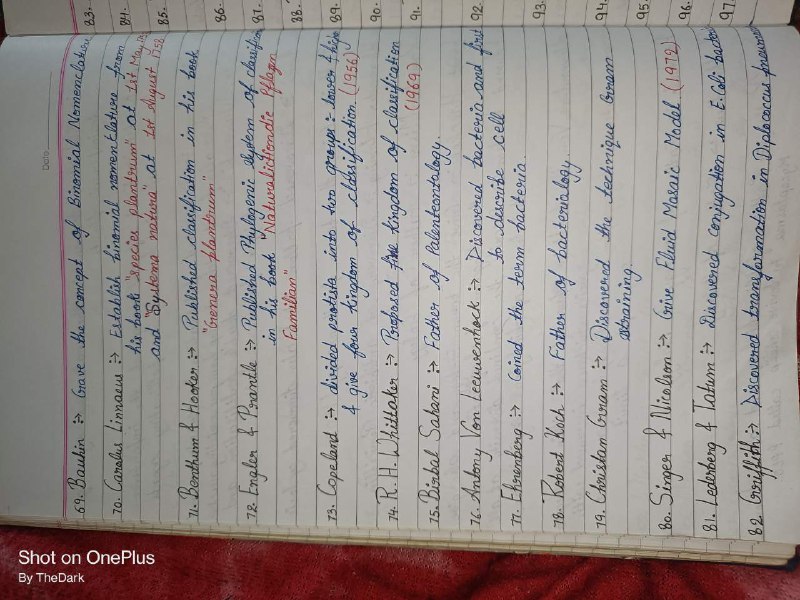 Date
69. Bauhin :-> Gave the concept of Binomial Nomenclature
70. Carolus Linnaeus :-> Establish binomial nomenclature from
his book "species plantrum" at 1st May,
and "Systema natura" at 1st August 1758
71. Benthum & Hooker :-> Published classification in his book
"Genera plantrum"
72. Engler & Prantle :-> Published Phylogenic system of
in his book "Naturalictiondie Pflagen
Familian"
73. Copeland :-> divided protista into two groups :- lower &
& give four kingdom of classification (1956)
74. R. H. Whittaker :-> Proposed five kingdom of classification
(1969)
75. Birbal Sahani :-> Father of Palenteontology.
76. Antony Von Leeuwenhock :-> Discovered bacteria and first
to describe cell
77. Ehrenberg :-> Coined the term bacteria.
78. Robert Koch :-> Father of bacteriology
79. Christan Gram :-> Discovered the technique Gram
straining.
80. Singer & Nicolson :-> Give Fluid Mosaic Model (1972)
81. Lederberg & Tatum :-> Discovered conjugation in E.Coli
82. Griffith :-> Discovered transformation in Diplococcus
83.
84.
85.
86.
87.
88.
89.
90.
91.
92.
93.
94.
95.
96.
97.
Shot on OnePlus
By TheDark